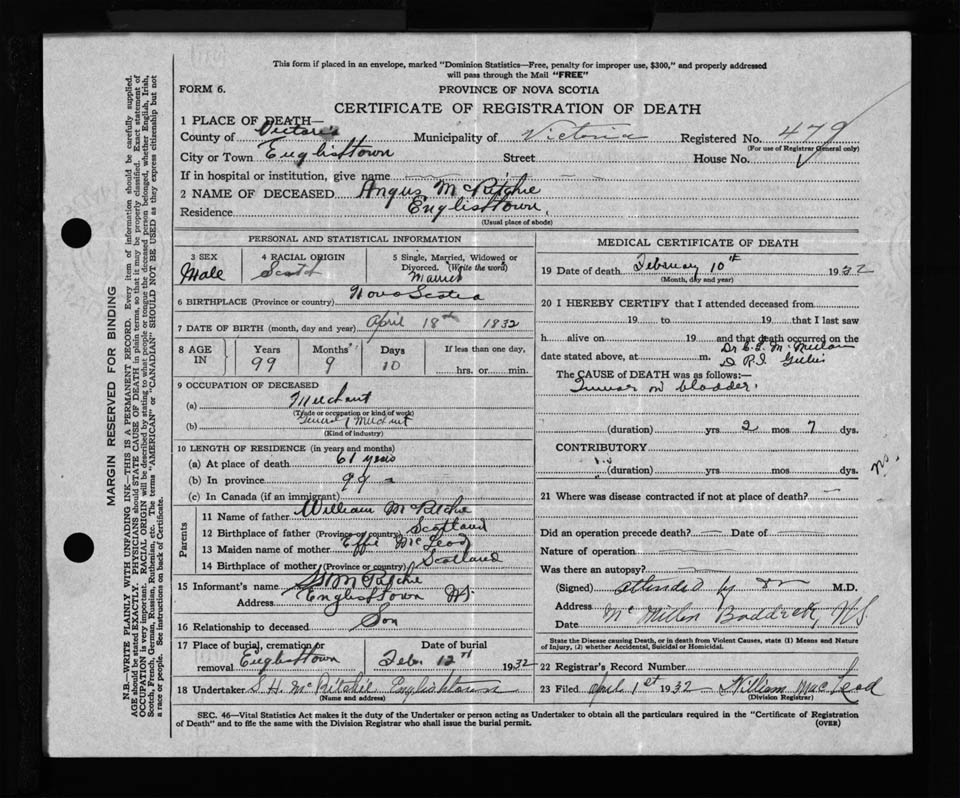 This form if placed in an envelope, marked "Dominion Statistics—Free, penalty for improper use, $300," and properly addressed
will pass through the Mail "FREE"
FORM 6.
PROVINCE OF NOVA SCOTIA
CERTIFICATE OF REGISTRATION OF DEATH
1 PLACE OF DEATH—
County of Victoria Municipality of Victoria Registered No. 479
(For use of Registrar General only)
City or Town Englishtown Street House No.
If in hospital or institution, give name
2 NAME OF DECEASED Angus McRitchie
Residence Englishtown.
(Usual place of abode)
PERSONAL AND STATISTICAL INFORMATION
3 SEX Male
4 RACIAL ORIGIN Scotch
5 Single, Married, Widowed or Divorced. (Write the word) Married
6 BIRTHPLACE (Province or country) Nova Scotia
7 DATE OF BIRTH (month, day and year) April 18th 1832
8 AGE IN Years Months Days If less than one day,
99 9 10 hrs. or min.
9 OCCUPATION OF DECEASED
(a) Merchant
(Trade or occupation or kind of work)
(b) General Merchant
(Kind of industry)
10 LENGTH OF RESIDENCE (in years and months)
(a) At place of death 61 years
(b) In province 99
(c) In Canada (if an immigrant)
Parents
11 Name of father William McRitchie
12 Birthplace of father (Province or country) Scotland
13 Maiden name of mother Effie McLeod
14 Birthplace of mother (Province or country) Scotland
15 Informant's name McRitchie
Address Englishtown NS.
16 Relationship to deceased Son
17 Place of burial, cremation or removal Englishtown
Date of burial Feb. 12th 1932
18 Undertaker S H. McRitchie Englishtown
(Name and address)
MEDICAL CERTIFICATE OF DEATH
19 Date of death February 10th 1932
(Month, day and year)
20 I HEREBY CERTIFY that I attended deceased from
19 to 19 that I last saw
h alive on 19 and that death occurred on the
Dr McMillan
date stated above, at m. Dr Gillis
The CAUSE of DEATH was as follows:—
Tumor on bladder.
(duration) yrs 2 mos 7 dys.
CONTRIBUTORY
(duration) yrs mos dys.
No.
21 Where was disease contracted if not at place of death?
Did an operation precede death? Date of
Nature of operation
Was there an autopsy?
(Signed) attended by Dr M.D.
Address McMillen Baddeck, NS.
Date
State the Disease causing Death, or in death from Violent Causes, state (1) Means and Nature
of Injury, (2) whether Accidental, Suicidal or Homicidal.
22 Registrar's Record Number
23 Filed April 1st 1932 William MacLeod
(Division Registrar)
SEC. 46—Vital Statistics Act makes it the duty of the Undertaker or person acting as Undertaker to obtain all the particulars required in the "Certificate of Registration
of Death" and to file the same with the Division Registrar who shall issue the burial permit.
(OVER)
MARGIN RESERVED FOR BINDING
N.B.—WRITE PLAINLY WITH UNFADING INK—THIS IS A PERMANENT RECORD. Every item of information should be carefully supplied.
AGE should be stated EXACTLY. PHYSICIANS should STATE CAUSE OF DEATH in plain terms, so that it may be properly classified. Exact statement of
OCCUPATION is very important. RACIAL ORIGIN will be described by stating to what people or tongue the deceased person belonged, whether English, Irish,
Scotch, French, German, Russian, Ruthenian, etc. The terms "AMERICAN" or "CANADIAN" SHOULD NOT BE USED as they express citizenship but not
a race or people. See instructions on back of Certificate.